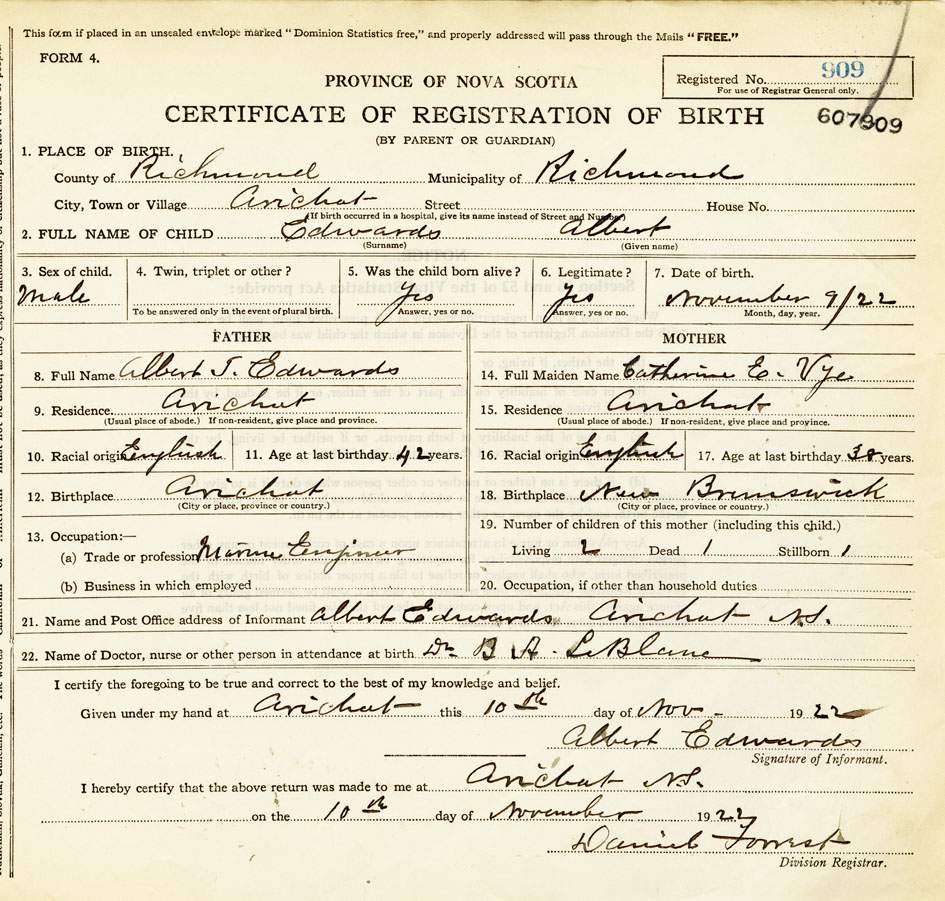 This form if placed in an unsealed envelope marked "Dominion Statistics free," and properly addressed will pass through the Mails "FREE."
FORM 4.
PROVINCE OF NOVA SCOTIA
Registered No. 909
For use of Registrar General only.
CERTIFICATE OF REGISTRATION OF BIRTH
607909
(BY PARENT OR GUARDIAN)
1. PLACE OF BIRTH.
County of Richmond Municipality of Richmond
City, Town or Village Arichat Street House No.
(If birth occurred in a hospital, give its name instead of Street and Number)
2. FULL NAME OF CHILD Edwards Albert
(Surname) (Given name)
3. Sex of child. 4. Twin, triplet or other? 5. Was the child born alive? 6. Legitimate? 7. Date of birth.
Male Yes Yes November 9/22
To be answered only in the event of plural birth. Answer, yes or no. Answer, yes or no. Month, day, year.
FATHER MOTHER
8. Full Name Albert J. Edwards 14. Full Maiden Name Catherine E. Vye
9. Residence Arichat 15. Residence Arichat
(Usual place of abode.) If non-resident, give place and province. (Usual place of abode.) If non-resident, give place and province.
10. Racial origin English 11. Age at last birthday 42 years. 16. Racial origin English 17. Age at last birthday 38 years.
12. Birthplace Arichat 18. Birthplace New Brunswick
(City or place, province or country.) (City or place, province or country.)
13. Occupation:— 19. Number of children of this mother (including this child.)
(a) Trade or profession Marine Engineer Living 2 Dead 1 Stillborn 1
(b) Business in which employed 20. Occupation, if other than household duties
21. Name and Post Office address of Informant Albert Edwards Arichat N.S.
22. Name of Doctor, nurse or other person in attendance at birth Dr B A. LeBlanc
I certify the foregoing to be true and correct to the best of my knowledge and belief.
Given under my hand at Arichat this 10th day of Nov - 1922
Albert Edwards
Signature of Informant.
I hereby certify that the above return was made to me at Arichat N.S.
on the 10th day of November 1922
Daniel Forrest
Division Registrar.